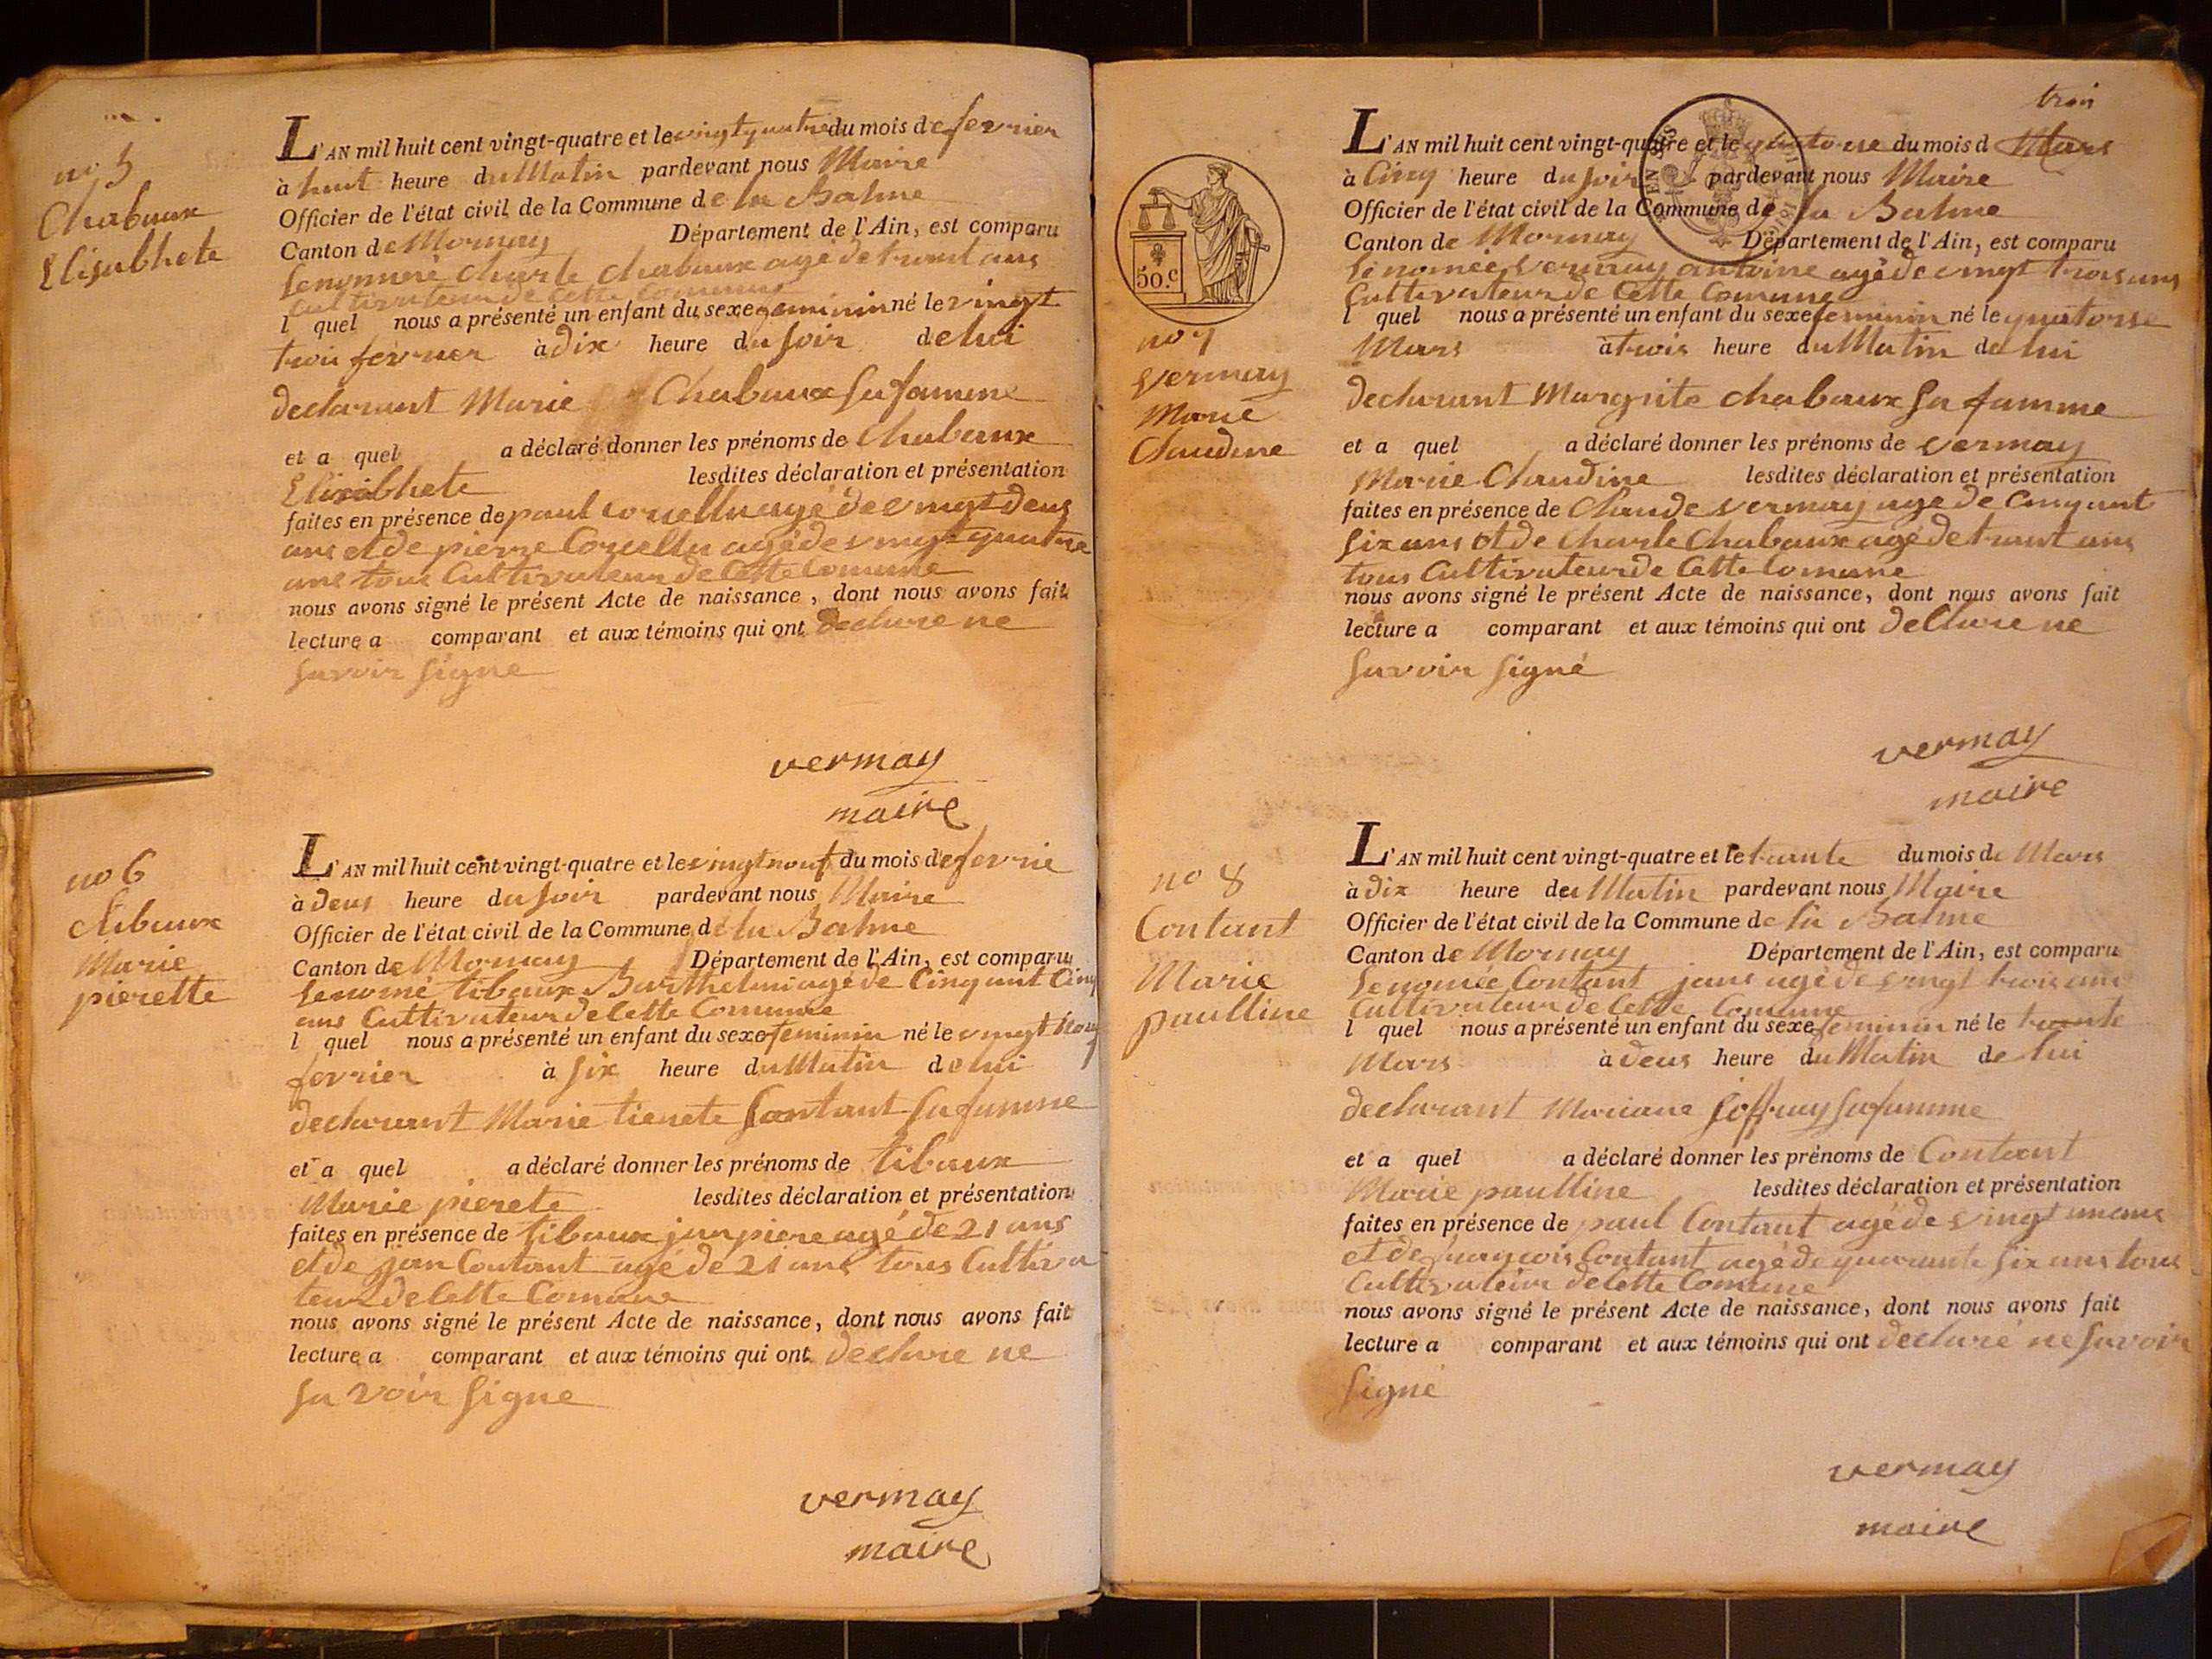 no 5
Chabaux
Elisabhete
L'AN mil huit cent vingt-quatre et le vingt quatre du mois de fevrier
à huit heure du Matin pardevant nous Maire
Officier de l'état civil de la Commune de la Balme
Canton de Mornay Département de l'Ain, est comparu
le nommé charle chabaux agé de trant ans
Cultivateur de cette commune
l quel nous a présenté un enfant du sexe feminin né le vingt
trois fevrier à dix heure du soir de lui
declarant Marie Chabaux sa famme
et a quel a déclaré donner les prénoms de Chabaux
Elisabhete lesdites déclaration et présentation
faites en présence de paul agé de vingt deus
ans et de pierre agé de vingt quatre
ans tous Cultivateur de Cette Comune
nous avons signé le présent Acte de naissance, dont nous avons fait
lecture a comparant et aux témoins qui ont declare ne
savoir signe
vermay
maire
no 6
tibaux
Marie
pierette
L'AN mil huit cent vingt-quatre et le vingt nouf du mois de fevrie
à deus heure du soir pardevant nous Maire
Officier de l'état civil de la Commune de la Balme
Canton de Mornay Département de l'Ain, est comparu
le nomé tibaux Barthelmi agé de Cinquant Cinq
ans Cultivateur de Cette Comune
l quel nous a présenté un enfant du sexe feminin né le vingt nouf
fevrier à six heure du Matin de lui
declarant Marie tienete Contant sa famme
et a quel a déclaré donner les prénoms de tibaux
Marie pierete lesdites déclaration et présentation
faites en présence de tibaux jan piere agé de 21 ans
et de jan Contant agé de 21 ans tous Cultiva
teur de Cette Comune
nous avons signé le présent Acte de naissance, dont nous avons fait
lecture a comparant et aux témoins qui ont declare ne
sa voir signe
vermay
maire
troi
50.c
no 7
vermay
Marie
Claudine
L'AN mil huit cent vingt-quatre et le quatorse du mois d Mars
à Cinq heure du soir pardevant nous Maire
Officier de l'état civil de la Commune de la Balme
Canton de Mornay Département de l'Ain, est comparu
le nomée vermay antoine agé de vingt trois ans
Cultivateur de Cette Comune
l quel nous a présenté un enfant du sexe feminin né le quatorse
Mars à trois heure du Matin de lui
declarant Margrite chabaux sa famme
et a quel a déclaré donner les prénoms de vermay
Marie Claudine lesdites déclaration et présentation
faites en présence de Claude vermay agé de Cinquant
six ans et de charle Chabaux agé de trant ans
tous Cultivateur de Cette Comune
nous avons signé le présent Acte de naissance, dont nous avons fait
lecture a comparant et aux témoins qui ont declare ne
savoir signé
vermay
maire
no 8
Contant
Marie
paulline
L'AN mil huit cent vingt-quatre et le trante du mois de Mars
à dix heure du Matin pardevant nous Maire
Officier de l'état civil de la Commune de la Balme
Canton de Mornay Département de l'Ain, est comparu
le nomée Contant jans agé de vingt trois ans
Cultivateur de Cette Comune
l quel nous a présenté un enfant du sexe feminin né le trante
Mars à deus heure du Matin de lui
declarant Mariane joffray sa famme
et a quel a déclaré donner les prénoms de Contant
Marie paulline lesdites déclaration et présentation
faites en présence de paul Contant agé de vingt un ans
et de françois Contant agé de quarante six ans tous
Cultivateur de Cette Comune
nous avons signé le présent Acte de naissance, dont nous avons fait
lecture a comparant et aux témoins qui ont declaré ne savoir
signé
vermay
maire